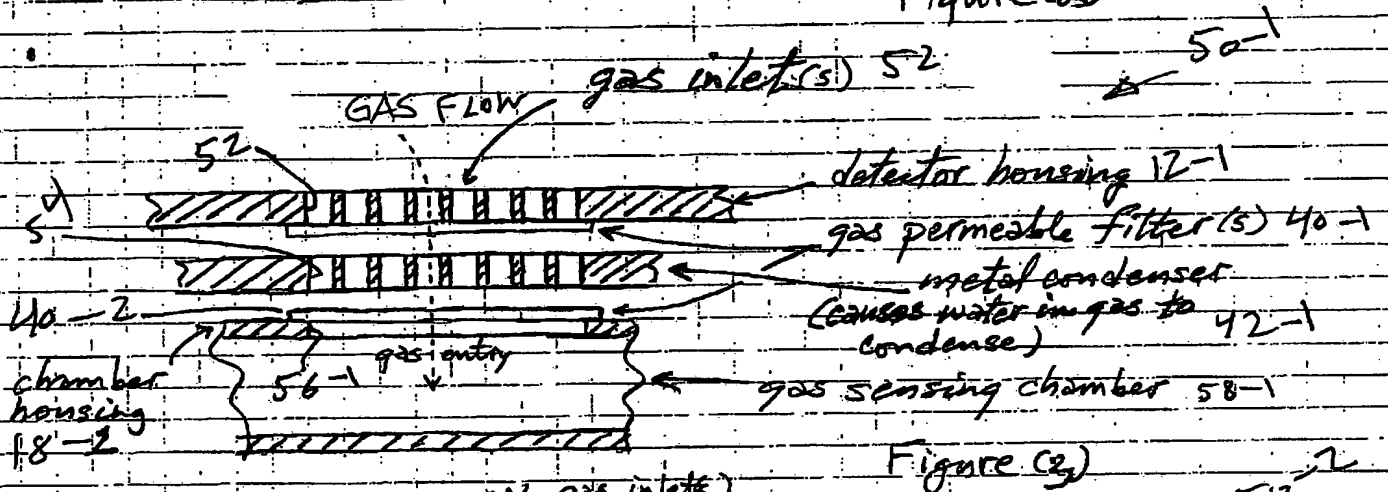 Figure
50-1
gas inlet(s) 52
GAS FLOW
52
detector housing 12-1
54
gas permeable filter(s) 40-1
metal condenser
(causes water in gas to
condense)
42-1
40-2
gas entry
chamber
housing
18-2
56-1
gas sensing chamber 58-1
Figure (2)
gas inlets)